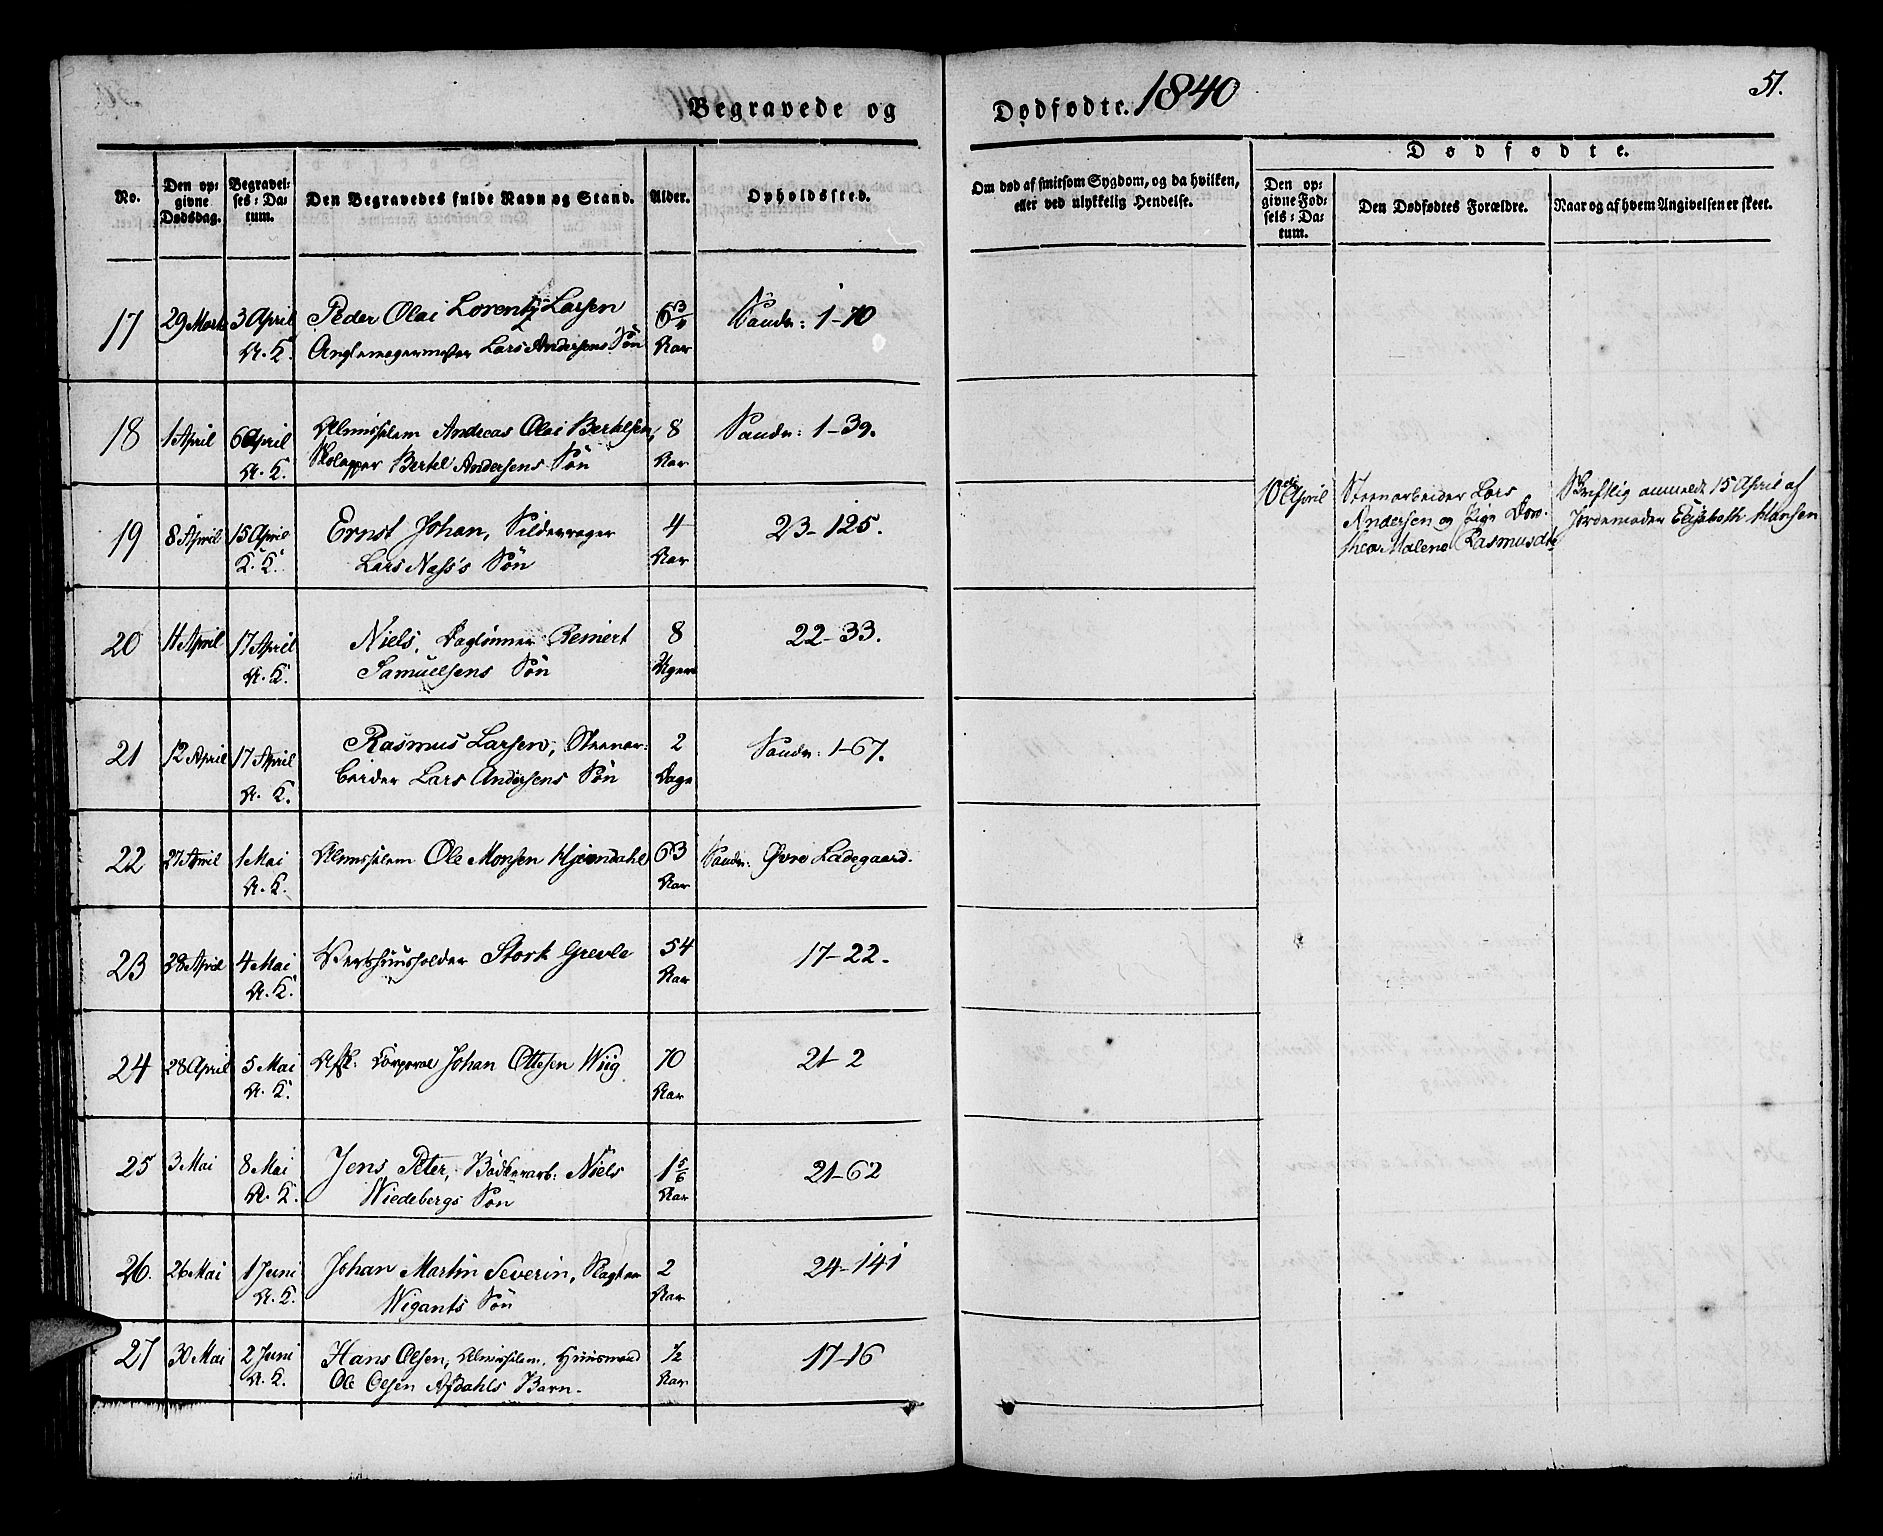 Begravede og Dødfødte. 1840
51.
No.
Den opgivne Dødsdag.
Begravelses-Datum.
Den Begravedes fulde Navn og Stand.
Alder.
Opholdssted.
Om død af smitsom Sygdom, og da hvilken, eller ved ulykkelig Hendelse.
Dødfødte.
Den opgivne Fødsels-Datum.
Den Dødfødtes Forældre.
Naar og af hvem Angivelsen er skeet.
17 29 Marts 3 April Peder Olai Lorentz Larsen 6 3/4 Sandv: 1-70
A. K. Lars Andersens Søn Aar
18 1 April 6 April Almisselem Andreas Olai Bertelsen, 8 Sandv: 1-39.
A. K. Bertel Andersens Søn Aar
10de April Steenarbeider Lars Andersen og Pige Dorthea Malene Rasmusd.
Skriftlig anmeldt 15 April af Jordemoder Elisabeth Hansen
19 8 April 15 April Ernst Johan, Sildevrager 4 23-125.
K. K. Lars Næss's Søn Aar
20 11 April 17 April Niels, Daglønner Reinert 8 22-33.
A. K. Samuelsens Søn Uger
21 12 April 17 April Rasmus Larsen, Steenar- 2 Sandv: 1-67.
A. K. beider Lars Andersens Søn Dage
22 27 April 1 Mai Almisselem Ole Monsen 63 Sandv: Øvre Ladegaard.
A. K. Aar
23 28 April 4 Mai Vertshuusholder Stork Grevle 54 17-22.
A. K. Aar
24 28 April 5 Mai Afsk: Corporal Johan Ottesen Wiig 70 21-2
A. K. Aar
25 3 Mai 8 Mai Jens Peter, Bødkerarb: Niels 1 5/6 21-62
A. K. Wiedebergs Søn Aar
26. 26 Mai 1 Juni Johan Martin Severin, Slagter 2 24-141
A. K. Wigants Søn Aar
27 30 Mai 2 Juni Hans Olsen, Almisselem, Huusmand 1/2 17-16
A. K. Ole Olsen Afdahls Barn. Aar